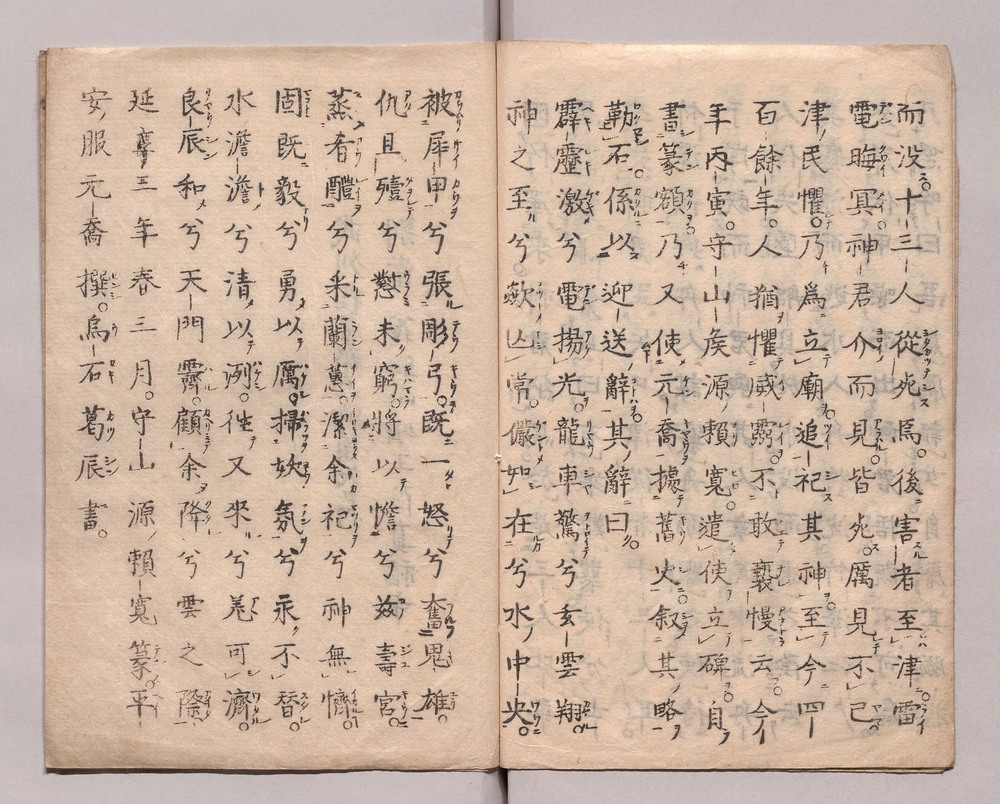 而没十三人従死焉後害者至津雷
電晦冥神君介而見皆死厲見不已
津民懼乃為立廟追祀其神至今四
百餘年人猶懼威霊不敢褻慢云今
年丙寅守山矦源頼寛遣使立碑自
書篆額乃又使元喬據舊史叙其略
勒石係以迎送辭其辭曰
霹靂激兮電揚光龍車驚兮玄雲翔
神之至兮歘亾常儼如在兮水中央
被犀甲兮張彫弓既一怒兮奮鬼雄
仇且殪兮懟未窮将以憺兮玆壽宮
蒸肴醴兮采蘭蕙潔余祀兮神無懠
固既毅兮勇以厲掃妖氛兮永不替
水澹澹兮清以洌徃又來兮羗可濟
良辰和兮天門霽顧余降兮雲之際
延享三年春三月守山源頼寛篆平
安服元喬撰烏石葛辰書